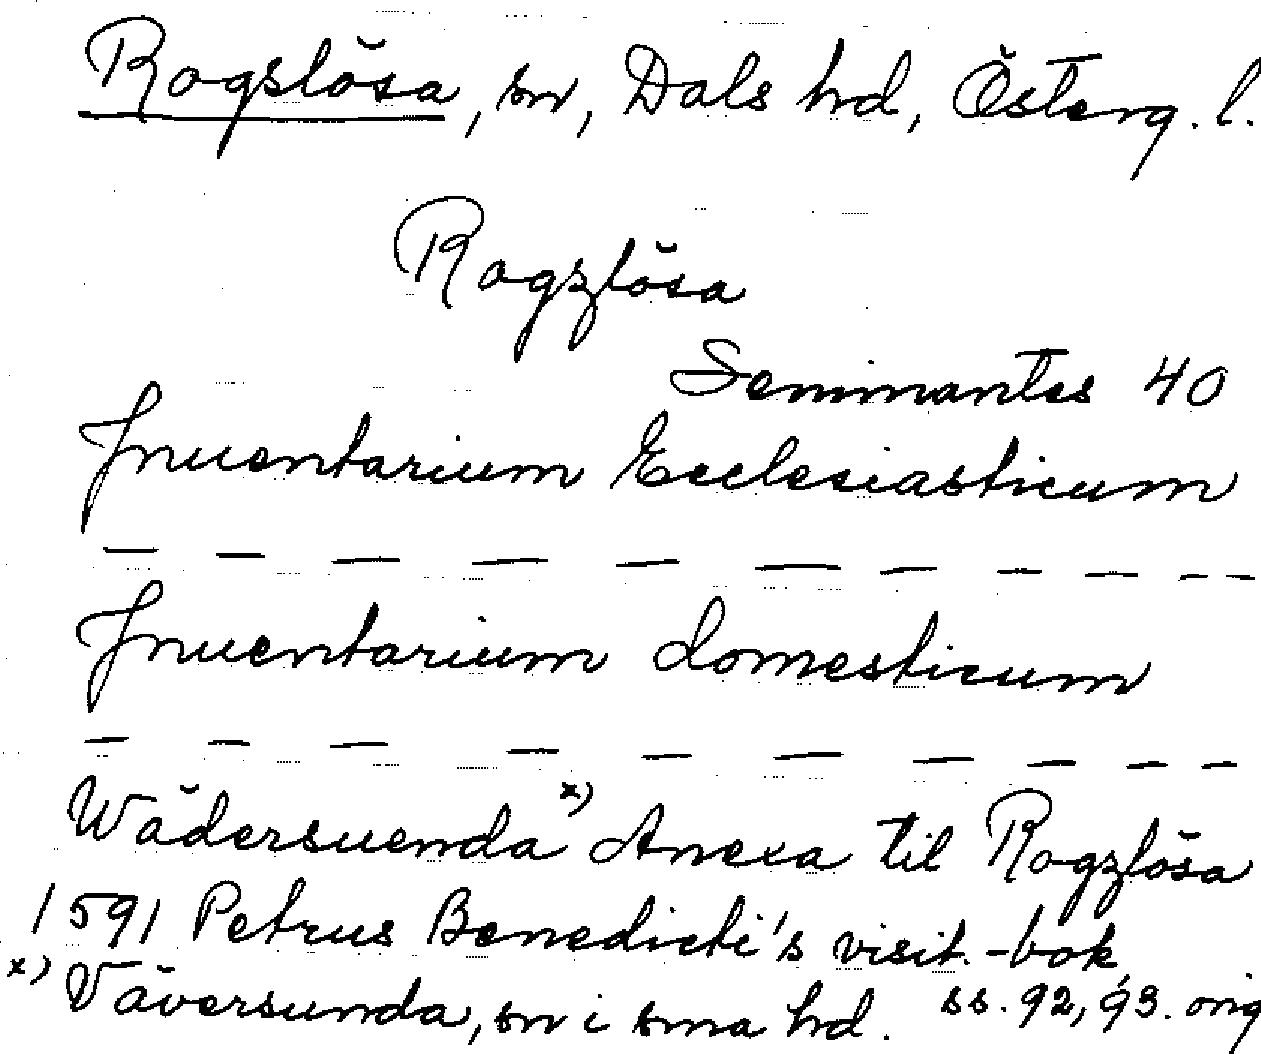 Rogslösa, sn, Dals hd, Österg. l.
Rogzlösa
Seminantes 40
Jnuentarium Ecclesiasticum
— — — — — — — — — — —
Jnuentarium domesticum
— — — — — — — — — —
Wädersuenda x) Anexa til Rogzlösa
1591 Petrus Benedicti's visit.-bok,
x) Väversunda, sn i sma hd. ss. 92, 93. orig